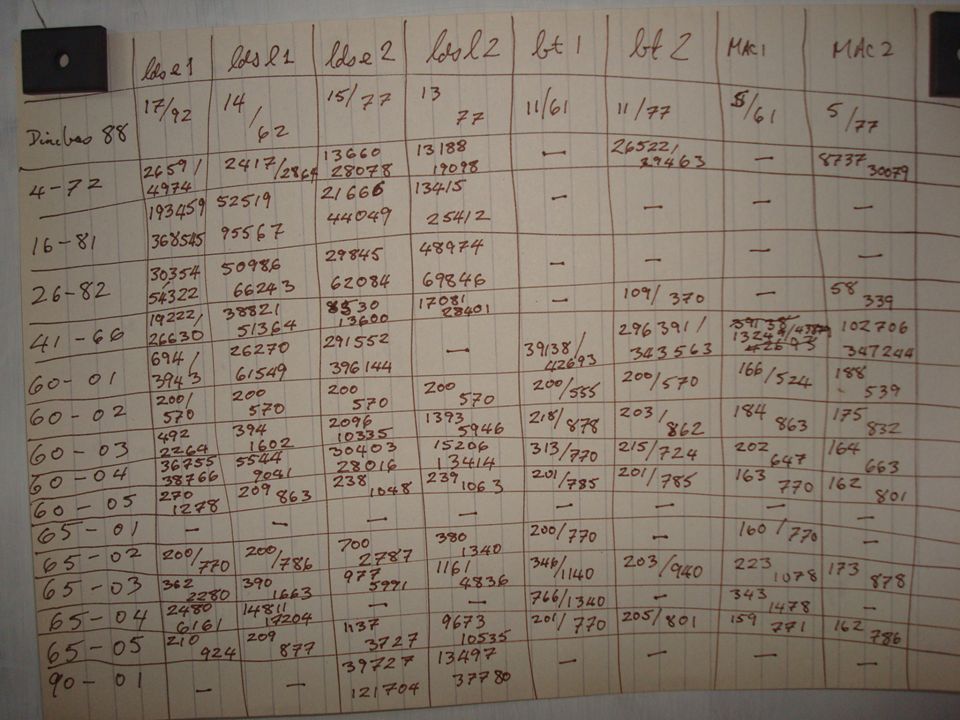 ldse1 ldsl1 ldse2 ldsl2 bt1 bt2 MAC1 MAC2
Dincbas 88 17/92 14/62 15/77 13 77 11/61 11/77 5/61 5/77
4-72 26591/4974 2417/2864 13660 28078 13188 19098 — 26522/29463 — 8737 30079
16-81 193459 368545 52519 95567 21666 44049 13415 25412 — — — —
26-82 30354 54322 50986 66243 29845 62084 48974 69846 — — — —
41-66 19222/26630 38821 51364 8530 13600 17081 28401 — 109/370 — 58 339
60-01 694/3943 26270 61549 291552 396144 — 39138/42693 296391/343563 102706 347244
60-02 200/570 200 570 200 570 200 570 200/555 200/570 166/524 188 539
60-03 492 2264 394 1602 2096 10335 1393 5946 218/878 203/862 184 863 175 832
60-04 36755 38766 5544 9041 30403 28016 15206 13414 313/770 215/724 202 647 164 663
60-05 270 1278 209 863 238 1048 239 1063 201/785 201/785 163 770 162 801
65-01 — — — — — — — —
65-02 200/770 200/786 700 2787 380 1340 200/770 — 160/770 —
65-03 362 2280 390 1663 977 5991 1161 4836 346/1140 203/940 223 1078 173 878
65-04 2480 6161 14811 17204 — — 766/1340 — 343 1478 —
65-05 210 924 209 877 1137 3727 9673 10535 201/770 205/801 159 771 162 786
90-01 — — 39727 121704 13497 37780 — — — —